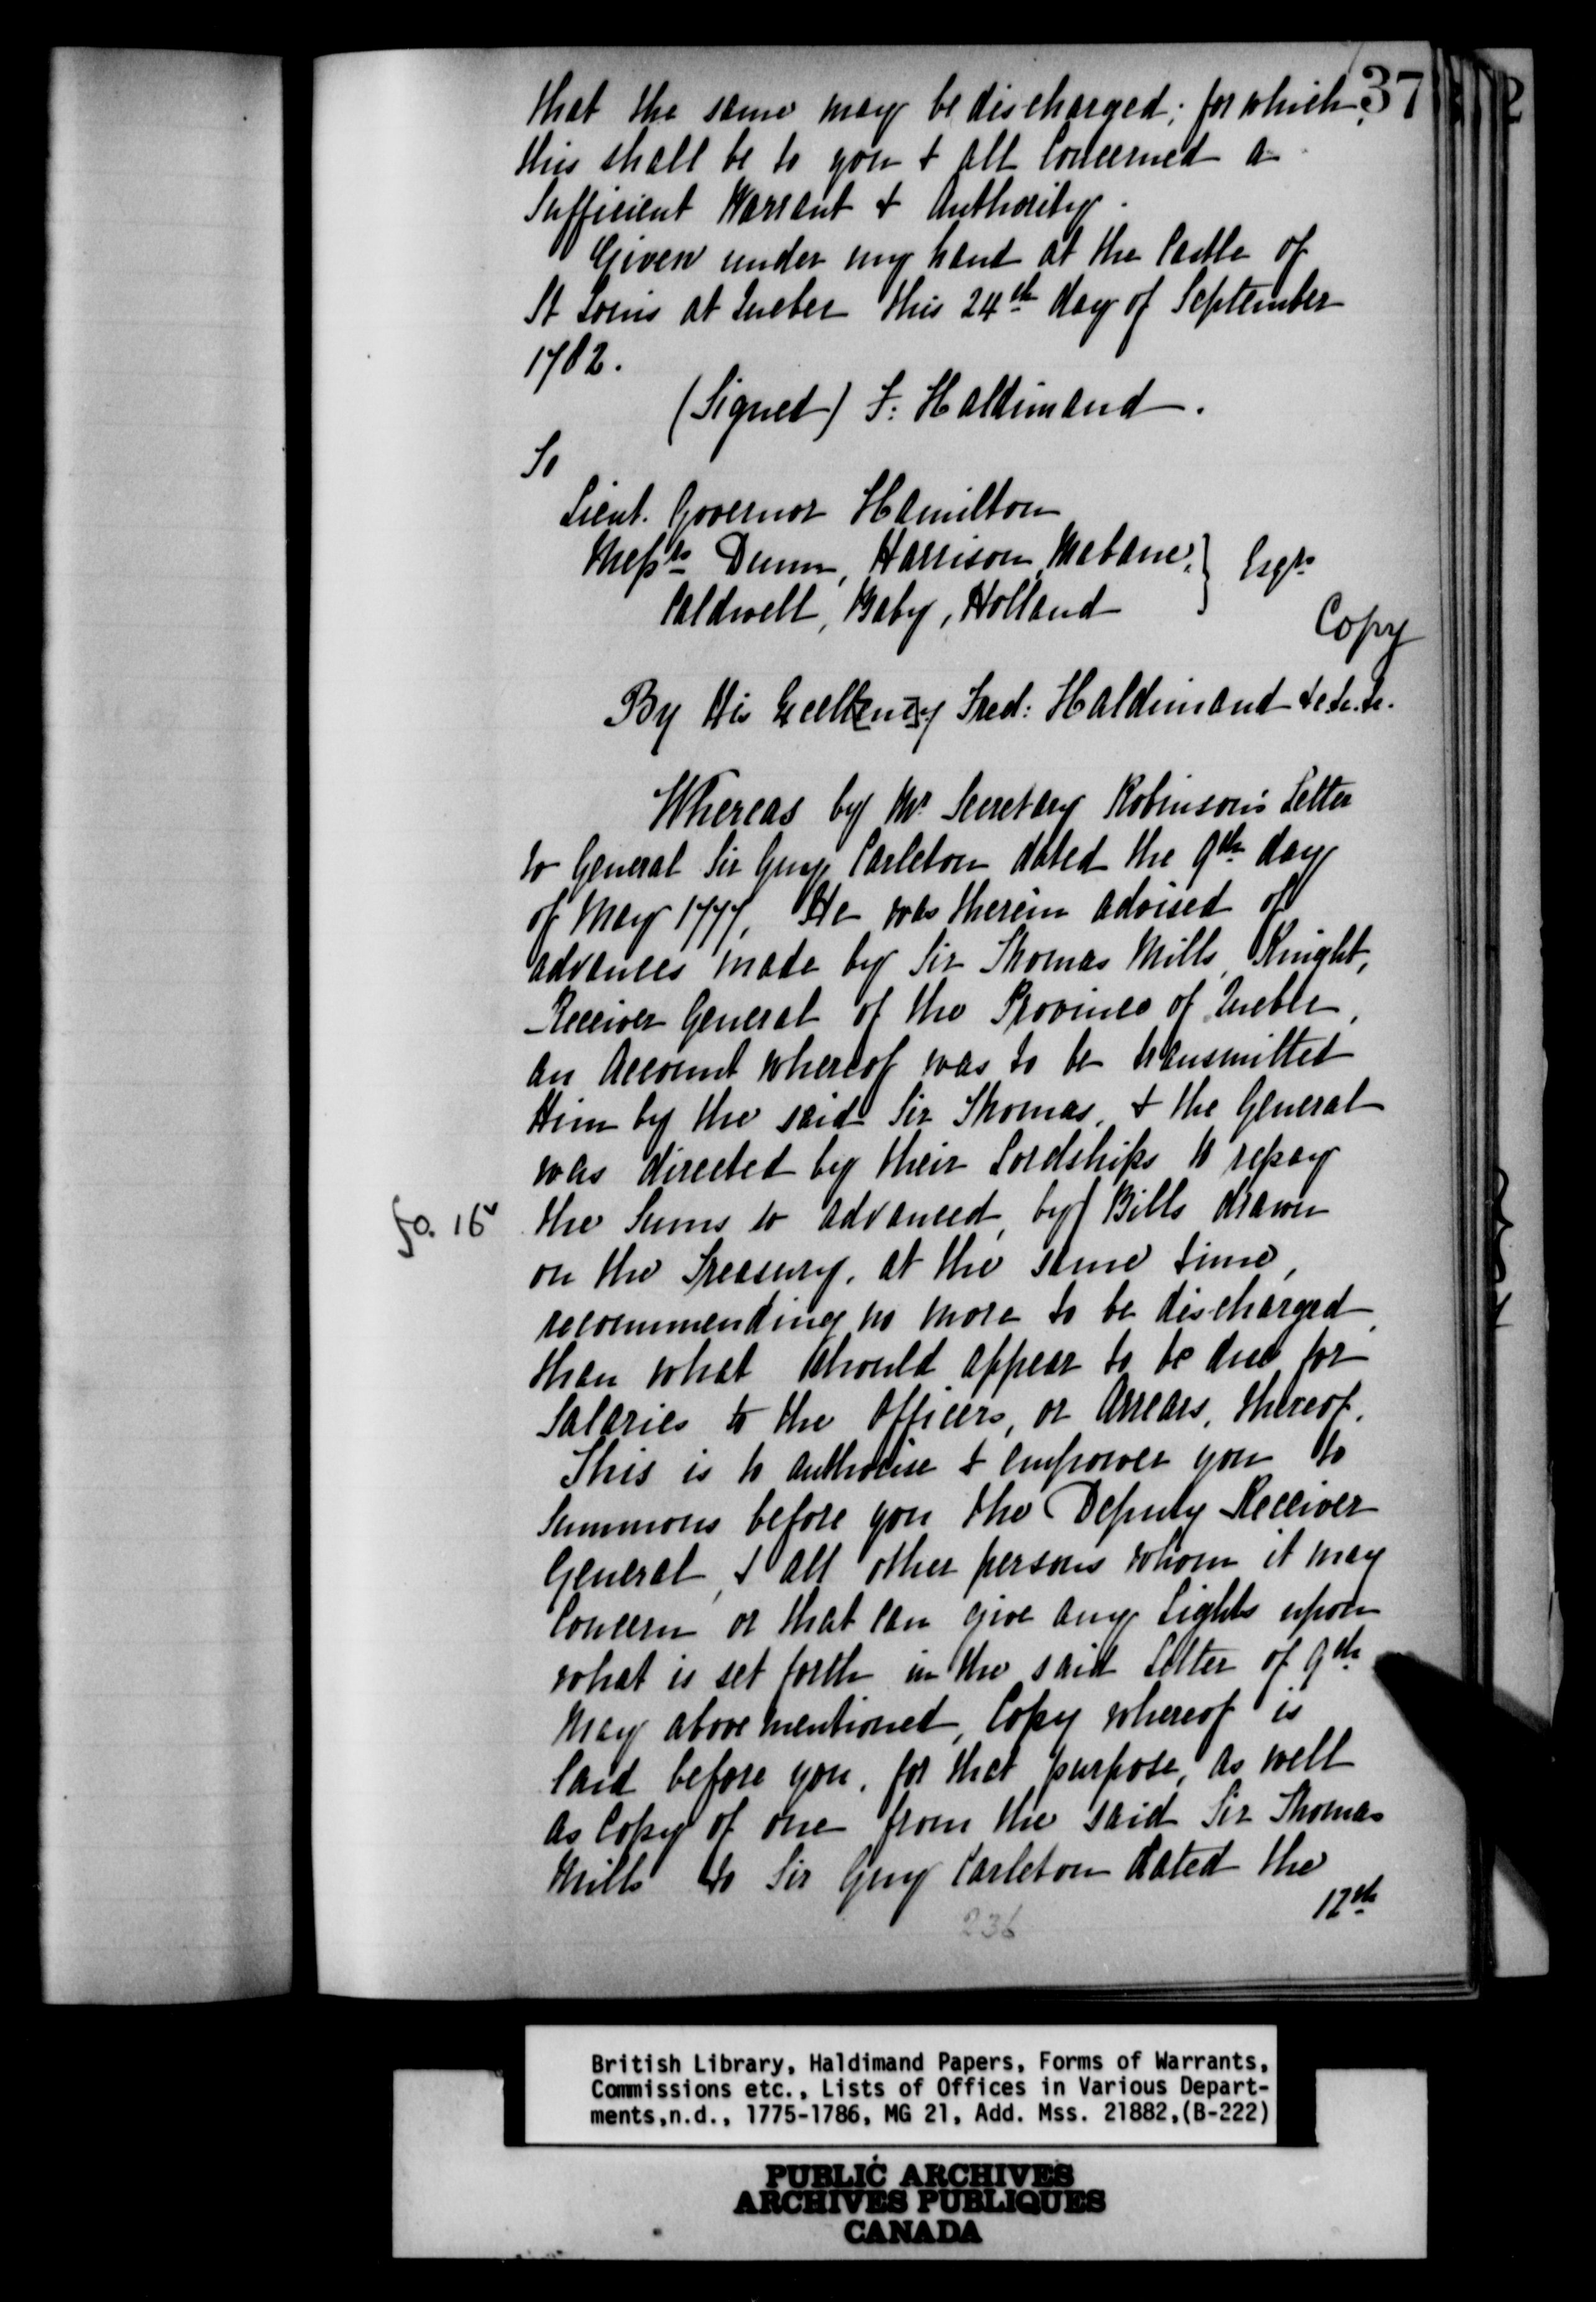 37
that the same may be discharged; for which
this shall be to you & all Concerned a
Sufficient Warrant & Authority.
Given under my hand at the Castle of
St Louis at Quebec this 24th day of September
1782.
(Signed) F: Haldimand.
To
Lieut. Governor Hamilton
Messrs Dunn, Harrison, Mabane, } Esqrs
Caldwell, Baby, Holland
Copy
By His Excellency Fred: Haldimand &c. &c. &c.
Whereas by Mr Secretary Robinson's Letter
to General Sir Guy Carleton dated the 9th day
of May 1777, He was therein advised of
advances made by Sir Thomas Mills, Knight,
Receiver General of the Province of Quebec,
an Account whereof was to be transmitted
Him by the said Sir Thomas, & the General
was directed by their Lordships to repay
fo. 16v the Sums so advanced, by Bills drawn
on the Treasury, at the same time,
recommending no more to be discharged,
than what should appear to be due for
Salaries to the Officers, or Arrears, thereof.
This is to authorise & empower you to
Summons before you the Deputy Receiver
General, & all other persons whom it may
Concern or that can give any Lights upon
what is set forth in the said Letter of 9th
May above mentioned, Copy whereof is
laid before you, for that purpose, as well
as Copy of one from the said Sir Thomas
Mills to Sir Guy Carleton dated the
12th
236
British Library, Haldimand Papers, Forms of Warrants,
Commissions etc., Lists of Offices in Various Depart-
ments,n.d., 1775-1786, MG 21, Add. Mss. 21882,(B-222)
PUBLIC ARCHIVES
ARCHIVES PUBLIQUES
CANADA